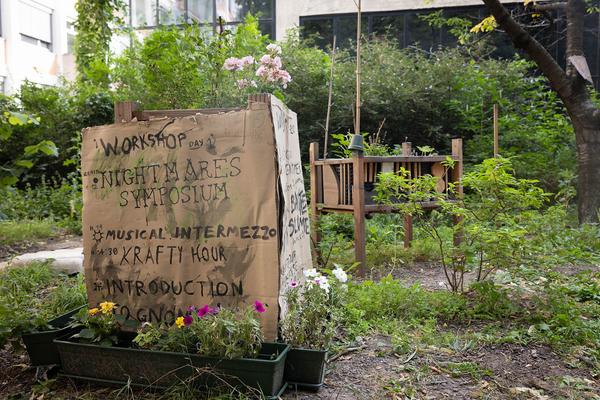 WORKSHOP DAY
NIGHTMARES
SYMPOSIUM
MUSICAL INTERMEZZO
30 KRAFTY HOUR
INTRODUCTION
TO GNOM
SLIME